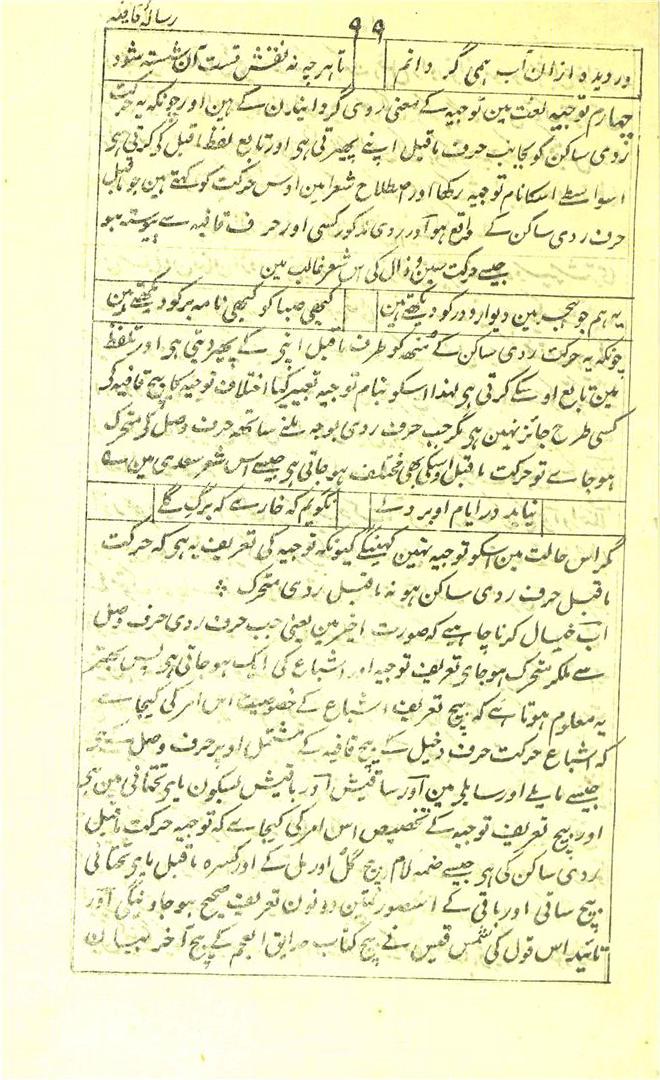 رسالۂ قافیہ
۹۹
در دیدہ ازان آب ہمی گردانم تا ہرچہ نہ نقش تست آن شستہ شود
چہارم توجیہ لغت مین توجیہ کے معنی روی گردانیدن کے ہین اور چونکہ یہ حرکت
روی ساکن کو بجانب حرف ماقبل اپنے پھیرتی ہی اور تابع لفظ ماقبل کو کرتی ہی
اسواسطے اسکا نام توجیہ رکھا اور اصطلاح شعرا مین اوس حرکت کو کہتے ہین جو ماقبل
حرف روی ساکن کے واقع ہو اور روی مذکور کسی اور حرف قافیہ سے پیوستہ ہو
جیسے حرکت سین و ذال کی اس شعر غالب مین
یہ ہم جو ہجر مین دیوار و در کو دیکھتے ہین کبھی صبا کو کبھی نامہ بر کو دیکھتے ہین
چونکہ یہ حرکت روی ساکن کے منھ کو طرف ماقبل اپنی کے پھیر دیتی ہی اور تلفظ
مین تابع اوسکے کرتی ہی لہذا اسکو بنام توجیہ تعبیر کیا اختلاف توجیہ کا بیچ قافیہ کے
کسی طرح جائز نہین ہی مگر جب حرف روی بوجہ ملنے ساتھ حرف وصل کے متحرک
ہو جاے تو حرکت ماقبل اوسکی بھی مختلف ہو جاتی ہی جیسے اس شعر سعدی مین ہے
نیاید در ایام او بر دلے نگویم کہ خارے کہ برگ گلے
مگر اس حالت مین اسکو توجیہ نہین کہینگے کیونکہ توجیہ کی تعریف یہ ہی کہ حرکت
ماقبل حرف روی ساکن ہو نہ ماقبل روی متحرک
اب خیال کرنا چاہیے کہ صورت اخیر مین یعنی جب حرف روی حرف وصل
سے ملکر متحرک ہو جاے تعریف توجیہ اور اشباع کی ایک ہو جاتی ہی پس بہتر
یہ معلوم ہوتا ہے کہ بیچ تعریف اشباع کے خصوصیت اس امر کی کیجاے
کہ اشباع حرکت حرف دخیل کے بیچ قافیہ کے مشتمل اوپر حرف وصل کے ہی
جیسے مایلے اور سایلے مین اور ساقیش اور باقیش بسکون یای تحتانی مین ہی
اور بیچ تعریف توجیہ کے تخصیص اس امر کی کیجاے کہ توجیہ حرکت ماقبل
روی ساکن کی ہی جیسے ضمہ لام بیچ گل اور مل کے اور کسرہ ماقبل یای تحتانی
بیچ ساقی اور باقی کے اسصورتمین دونون تعریف صحیح ہو جاوینگی اور
تائید اس قول کی شمس قیس نے بیچ کتاب حدایق العجم کے بیچ آخر بیان